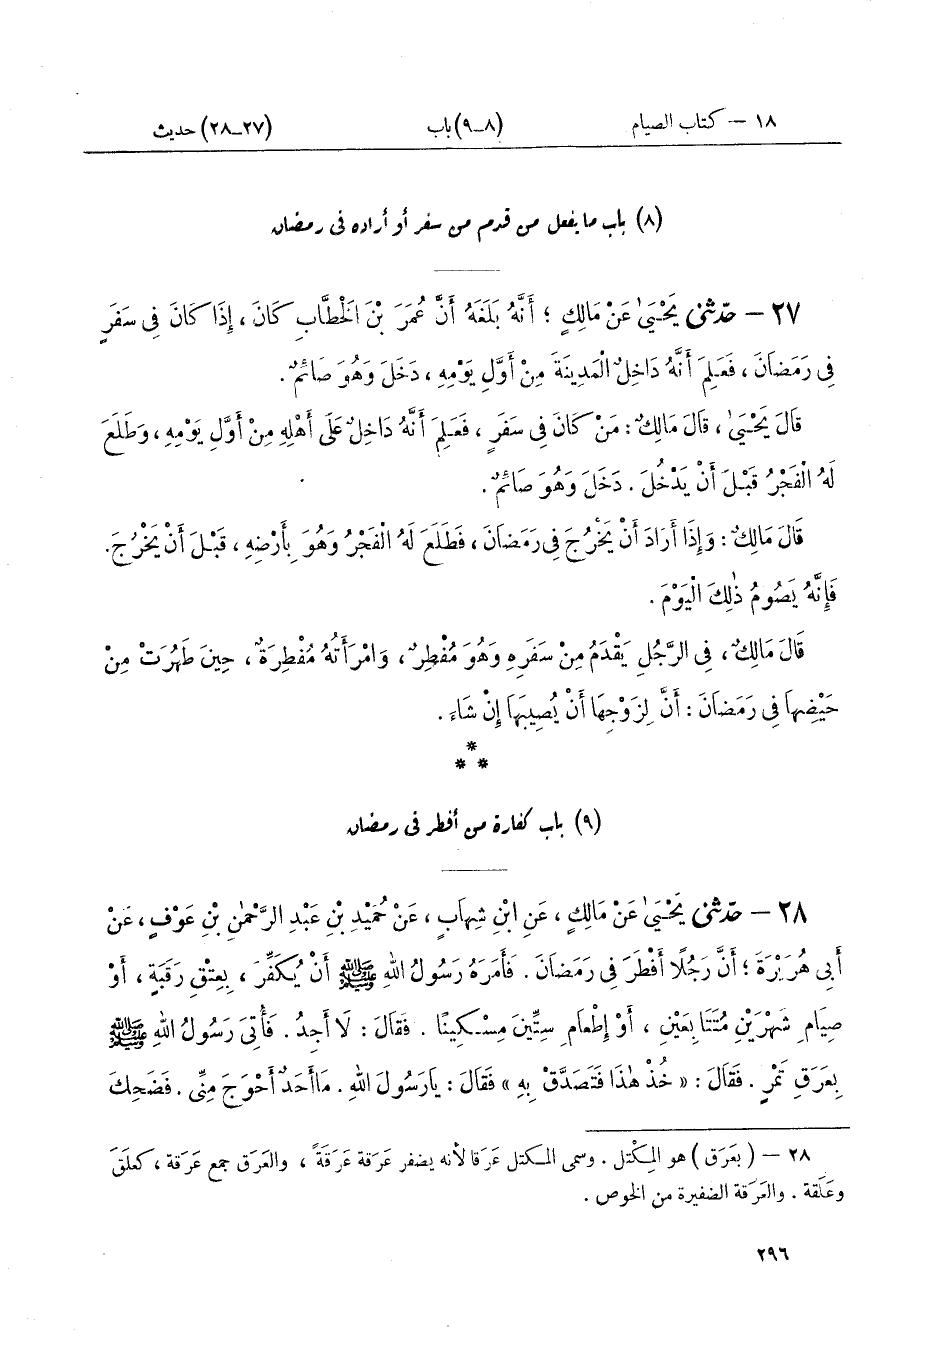 ١٨ – كتاب الصيام (٨–٩) باب (٢٧–٢٨) حديث
(٨) باب ما يفعل من قدم من سفر أو أراده فى رمضان
٢٧ – حَدَّثَنِى يَحْيَىٰ عَنْ مَالِكٍ ؛ أَنَّهُ بَلَغَهُ أَنَّ عُمَرَ بْنَ الْخَطَّابِ كَانَ ، إِذَا كَانَ فِى سَفَرٍ
فِى رَمَضَانَ ، فَعَلِمَ أَنَّهُ دَاخِلٌ الْمَدِينَةَ مِنْ أَوَّلِ يَوْمِهِ ، دَخَلَ وَهُوَ صَائِمٌ .
قَالَ يَحْيَىٰ ، قَالَ مَالِكٌ : مَنْ كَانَ فِى سَفَرٍ ، فَعَلِمَ أَنَّهُ دَاخِلٌ عَلَى أَهْلِهِ مِنْ أَوَّلِ يَوْمِهِ ، وَطَلَعَ
لَهُ الْفَجْرُ قَبْلَ أَنْ يَدْخُلَ . دَخَلَ وَهُوَ صَائِمٌ .
قَالَ مَالِكٌ : وَإِذَا أَرَادَ أَنْ يَخْرُجَ فِى رَمَضَانَ ، فَطَلَعَ لَهُ الْفَجْرُ وَهُوَ بِأَرْضِهِ ، قَبْلَ أَنْ يَخْرُجَ .
فَإِنَّهُ يَصُومُ ذٰلِكَ الْيَوْمَ .
قَالَ مَالِكٌ ، فِى الرَّجُلِ يَقْدَمُ مِنْ سَفَرِهِ وَهُوَ مُفْطِرٌ ، وَامْرَأَتُهُ مُفْطِرَةٌ ، حِينَ طَهُرَتْ مِنْ
حَيْضِهَا فِى رَمَضَانَ : أَنَّ لِزَوْجِهَا أَنْ يُصِيبَهَا إِنْ شَاءَ .
*
* *
(٩) باب كفارة من أفطر فى رمضان
٢٨ – حَدَّثَنِى يَحْيَىٰ عَنْ مَالِكٍ ، عَنِ ابْنِ شِهَابٍ ، عَنْ حُمَيْدِ بْنِ عَبْدِ الرَّحْمٰنِ بْنِ عَوْفٍ ، عَنْ
أَبِى هُرَيْرَةَ ؛ أَنَّ رَجُلًا أَفْطَرَ فِى رَمَضَانَ . فَأَمَرَهُ رَسُولُ اللهِ ﷺ أَنْ يُكَفِّرَ ، بِعِتْقِ رَقَبَةٍ ، أَوْ
صِيَامِ شَهْرَيْنِ مُتَتَابِعَيْنِ ، أَوْ إِطْعَامِ سِتِّينَ مِسْكِينًا . فَقَالَ : لَا أَجِدُ . فَأُتِىَ رَسُولُ اللهِ ﷺ
بِعَرَقِ تَمْرٍ . فَقَالَ : « خُذْ هٰذَا فَتَصَدَّقْ بِهِ » فَقَالَ : يَارَسُولَ اللهِ . مَاأَحَدٌ أَحْوَجَ مِنِّى . فَضَحِكَ
٢٨ – ( بعَرَق ) هو المِكْتل . وسمى المكتل عَرَقا لأنه يضفر عَرَقة عَرَقةً ، والعَرَق جمع عَرَقة ، كعلَقَ
وعَلَقة . والعَرَقة الضفيرة من الخوص .
٢٩٦